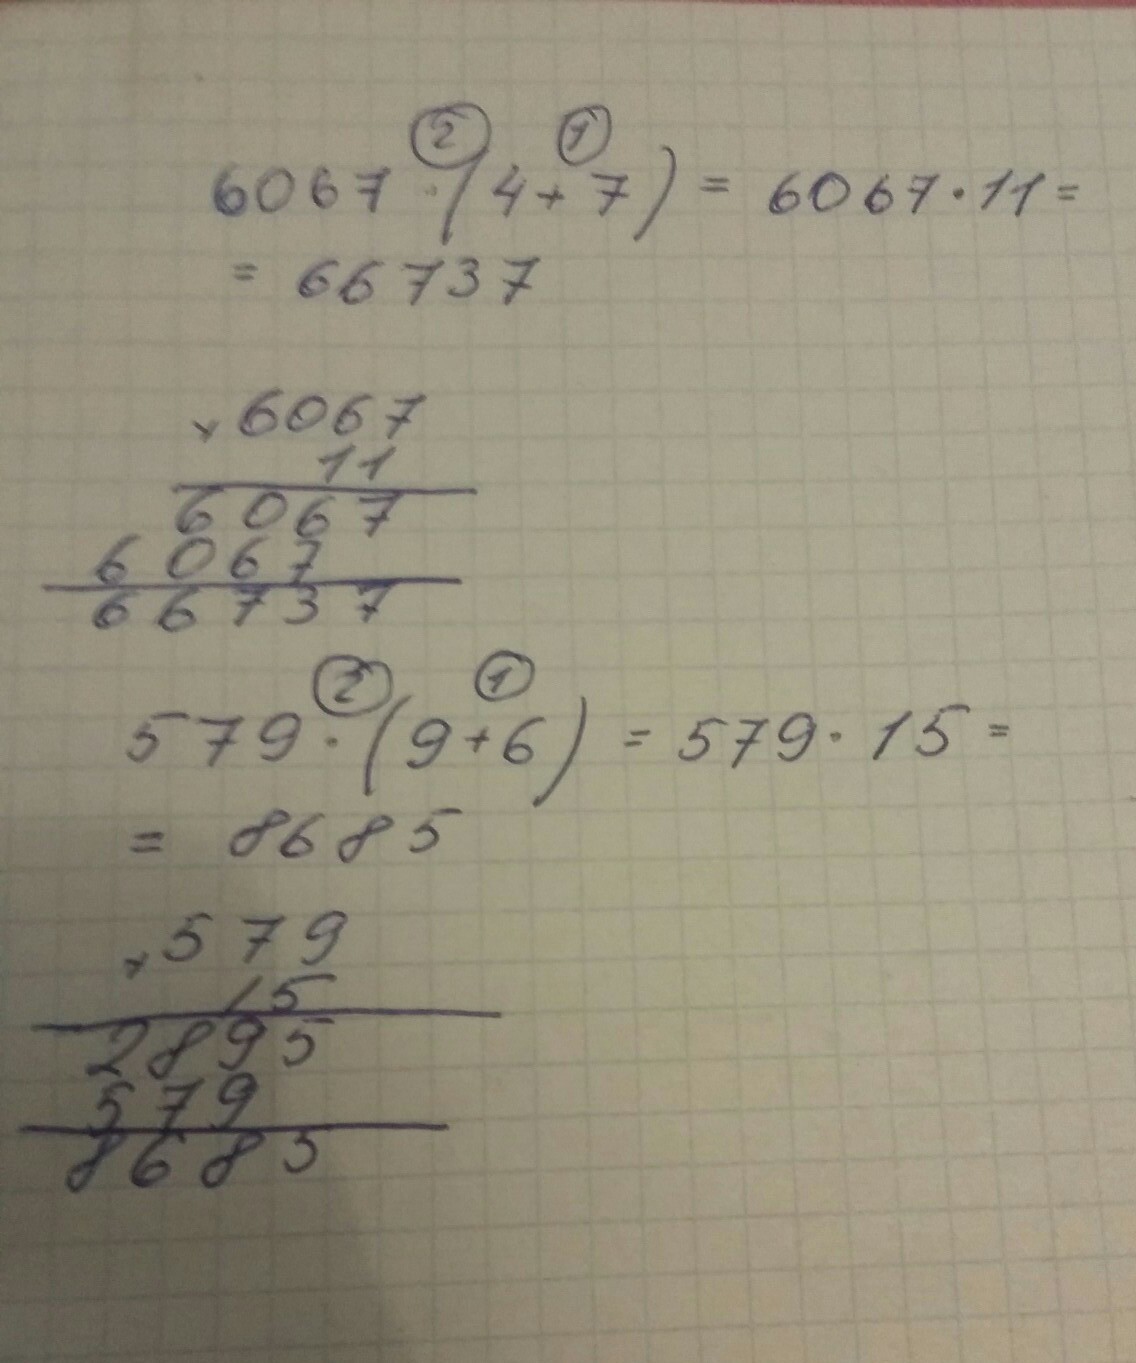 ② ①
6067 · (4 + 7) = 6067 · 11 =
= 66737
× 6067
11
6067
6067
66737
② ①
579 · (9 + 6) = 579 · 15 =
= 8685
× 579
15
2895
579
8685